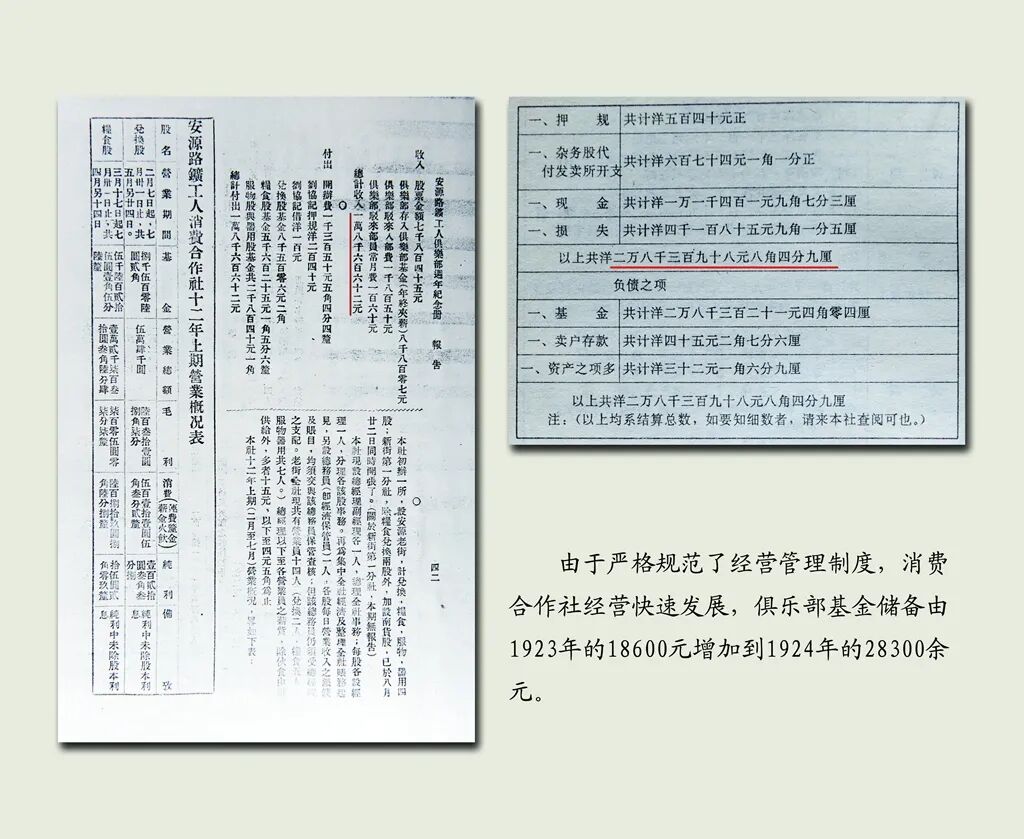 安源路鑛工人俱樂部週年紀念冊　報告　四二
收入　股票金額七千八百四十五元
俱樂部存入俱樂部基金(年終夾賬)八千八百零七元
俱樂部駁來入部費一千八百五十元
俱樂部駁來部員常月費一百六十元
總計收入一萬八千六百六十二元
付出　開辦費一千三百五十元五角四分四釐
劉協記押規洋二百四十元
劉協記借洋一百元
兌換股基金八千五百零六元二角
糧食股基金五千六百二十五元一角五分六釐
服物股與器用股基金共二千八百四十元一角
總計付出一萬八千六百六十二元
本社初辦一所，設安源老街，計兌換，糧食，服物，器用四
股；新街第一分社，除糧食兌換兩股外，加設南貨股，已於八月
廿二日同時開張了。(關於新街第一分社，本期無報告)
本社現設總經理副經理各一人，總理全社事務；每股各設經
理一人，分理各該股事務。再爲集中全社經濟及整理全社賬務起
見，另設總務員(即經濟保管員)一人，各股每日營業收入之銀錢
及賬目，均須交與該總務員保管查核；但該總務員仍須受總經理
之支配。老街全社現共有營業員十四人(兌換二人，糧食五人，
服物器用共七人。)總經理以下至各營業員之薪資，除伙食由社
供給外，多者十五元，以下至四元五角爲止
本社十二年上期(二月至七月)營業概況，畧如下表：
安源路鑛工人消費合作社十二年上期營業概況表
股名　營業期間　基金　營業總額　毛利　消費(運費釐金薪金火飲)　純利　備攷
兌換股　二月七日起，七月卅一日止，共五月另廿四日。　捌千伍百零陸元貳角　伍萬肆千圓　陸百叁拾壹圓捌角柒分　伍百壹拾壹圓伍角叁分貳釐　壹百貳拾圓叁角叁分捌釐　純利中未除股本利息
糧食股　三月十七日起七月卅一日止，共四月另十四日　伍千陸百貳拾伍圓壹角伍分陸釐　壹萬貳千柒百叁拾圓叁角陸分　柒百零伍圓零柒分柒釐　陸百捌拾玖圓捌角陸分捌釐　拾伍圓貳角零玖釐　純利中未除股本利息
一、押　　规　共计洋五百四十元正
一、杂务股代付发卖所开支　共计洋六百七十四元一角一分正
一、现　　金　共计洋一万一千四百一元九角七分三厘
一、损　　失　共计洋四千一百八十五元九角一分五厘
以上共洋二万八千三百九十八元八角四分九厘
负债之项
一、基　　金　共计洋二万八千三百二十一元四角零四厘
一、卖户存款　共计洋四十五元二角七分六厘
一、资产之项多　共计洋三十二元一角六分九厘
以上共计洋二万八千三百九十八元八角四分九厘
注：(以上均系结算总数，如要知细数者，请来本社查阅可也。)
由于严格规范了经营管理制度，消费
合作社经营快速发展，俱乐部基金储备由
1923年的18600元增加到1924年的28300余
元。